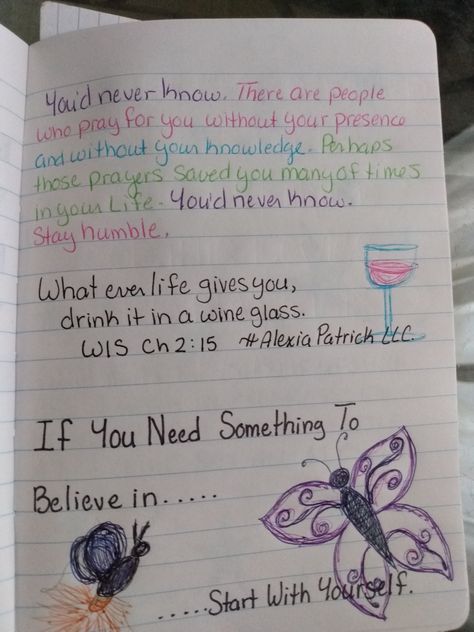 You'd never know. There are people
who pray for you without your presence
and without your knowledge. Perhaps
those prayers saved you many of times
in your Life. You'd never know.
Stay humble.
What ever life gives you,
drink it in a wine glass.
WIS Ch 2:15 #Alexia Patrick LLC.
If You Need Something To
Believe in.....
.....Start With Yourself.